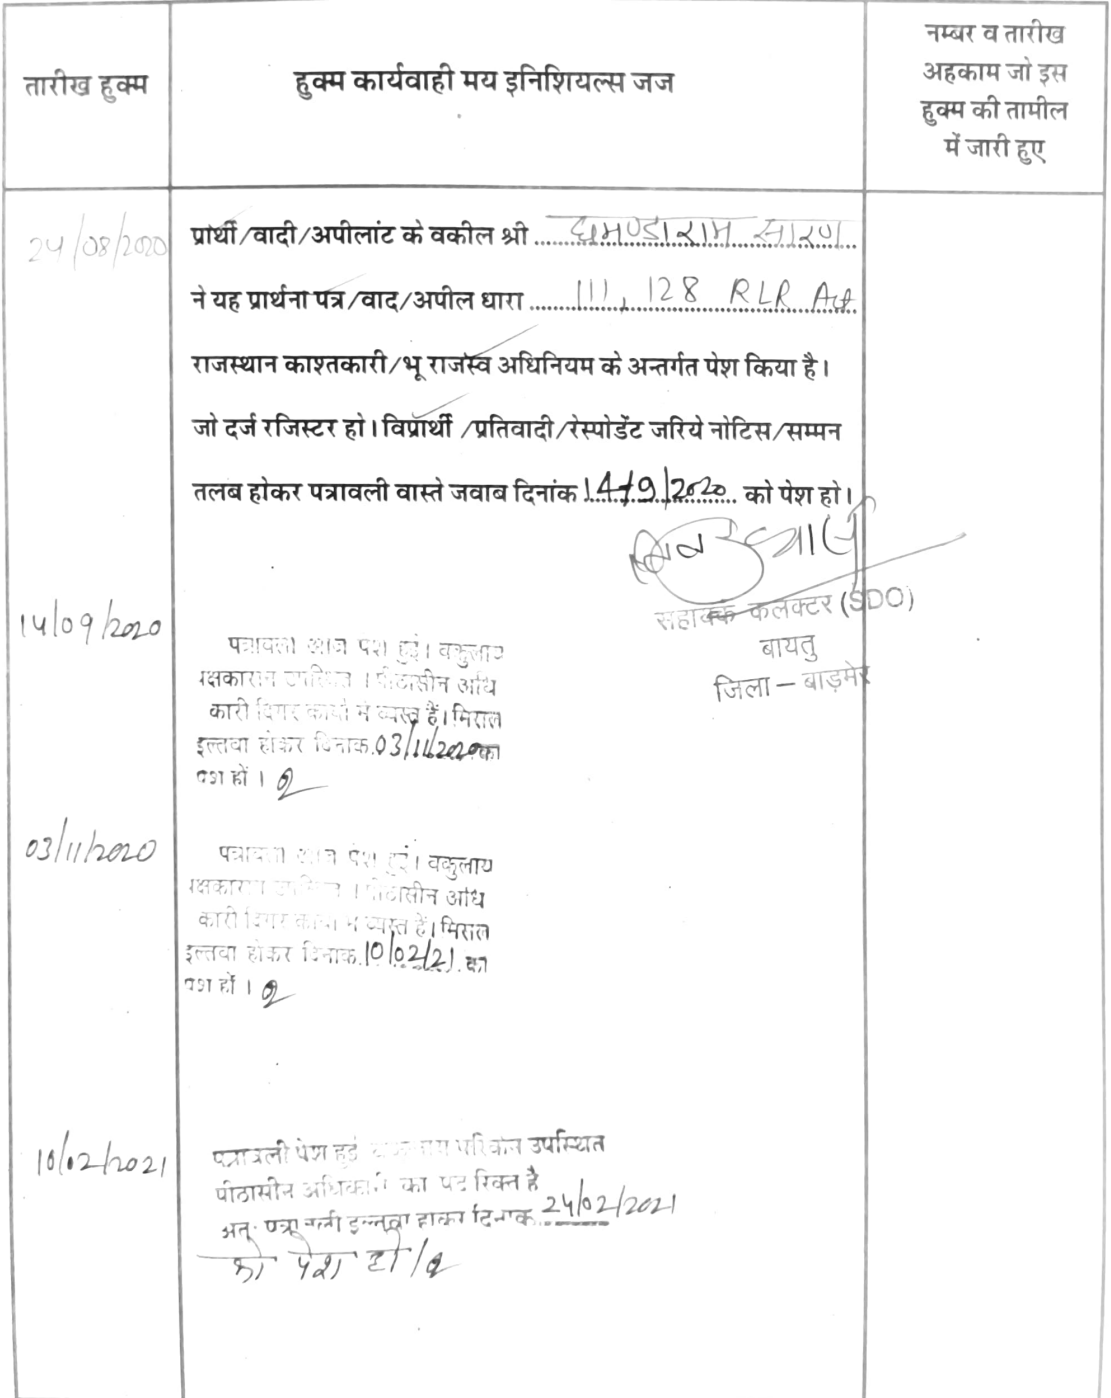 तारीख हुक्म
हुक्म कार्यवाही मय इनिशियल्स जज
नम्बर व तारीख
अहकाम जो इस
हुक्म की तामील
में जारी हुए
24/08/2020
प्रार्थी/वादी/अपीलांट के वकील श्री घमण्डाराम सारण
ने यह प्रार्थना पत्र/वाद/अपील धारा 111, 128 RLR Act
राजस्थान काश्तकारी/भू राजस्व अधिनियम के अन्तर्गत पेश किया है।
जो दर्ज रजिस्टर हो। विप्रार्थी /प्रतिवादी/रेस्पोडेंट जरिये नोटिस/सम्मन
तलब होकर पत्रावली वास्ते जवाब दिनांक 14/9/2020 को पेश हो।
सहायक कलक्टर (SDO)
बायतु
जिला – बाड़मेर
14/09/2020
पत्रावली आज पेश हुई। वकुलाय
पक्षकारान उपस्थित । पीठासीन अधि
कारी दिगर कार्यो में व्यस्त हैं। मिसल
इल्तवा होकर दिनांक 03/11/2020 को
पेश हों ।
03/11/2020
पत्रावली आज पेश हुई। वकुलाय
पक्षकारान उपस्थित । पीठासीन अधि
कारी दिगर कार्यो में व्यस्त हैं। मिसल
इल्तवा होकर दिनांक 10/02/21 को
पेश हों ।
10/02/2021
पत्रावली पेश हुई उपस्थित
पीठासीन अधिकारी का पद रिक्त है
अतः पत्रावली इल्तवा होकर दिनांक 24/02/2021
को पेश हो